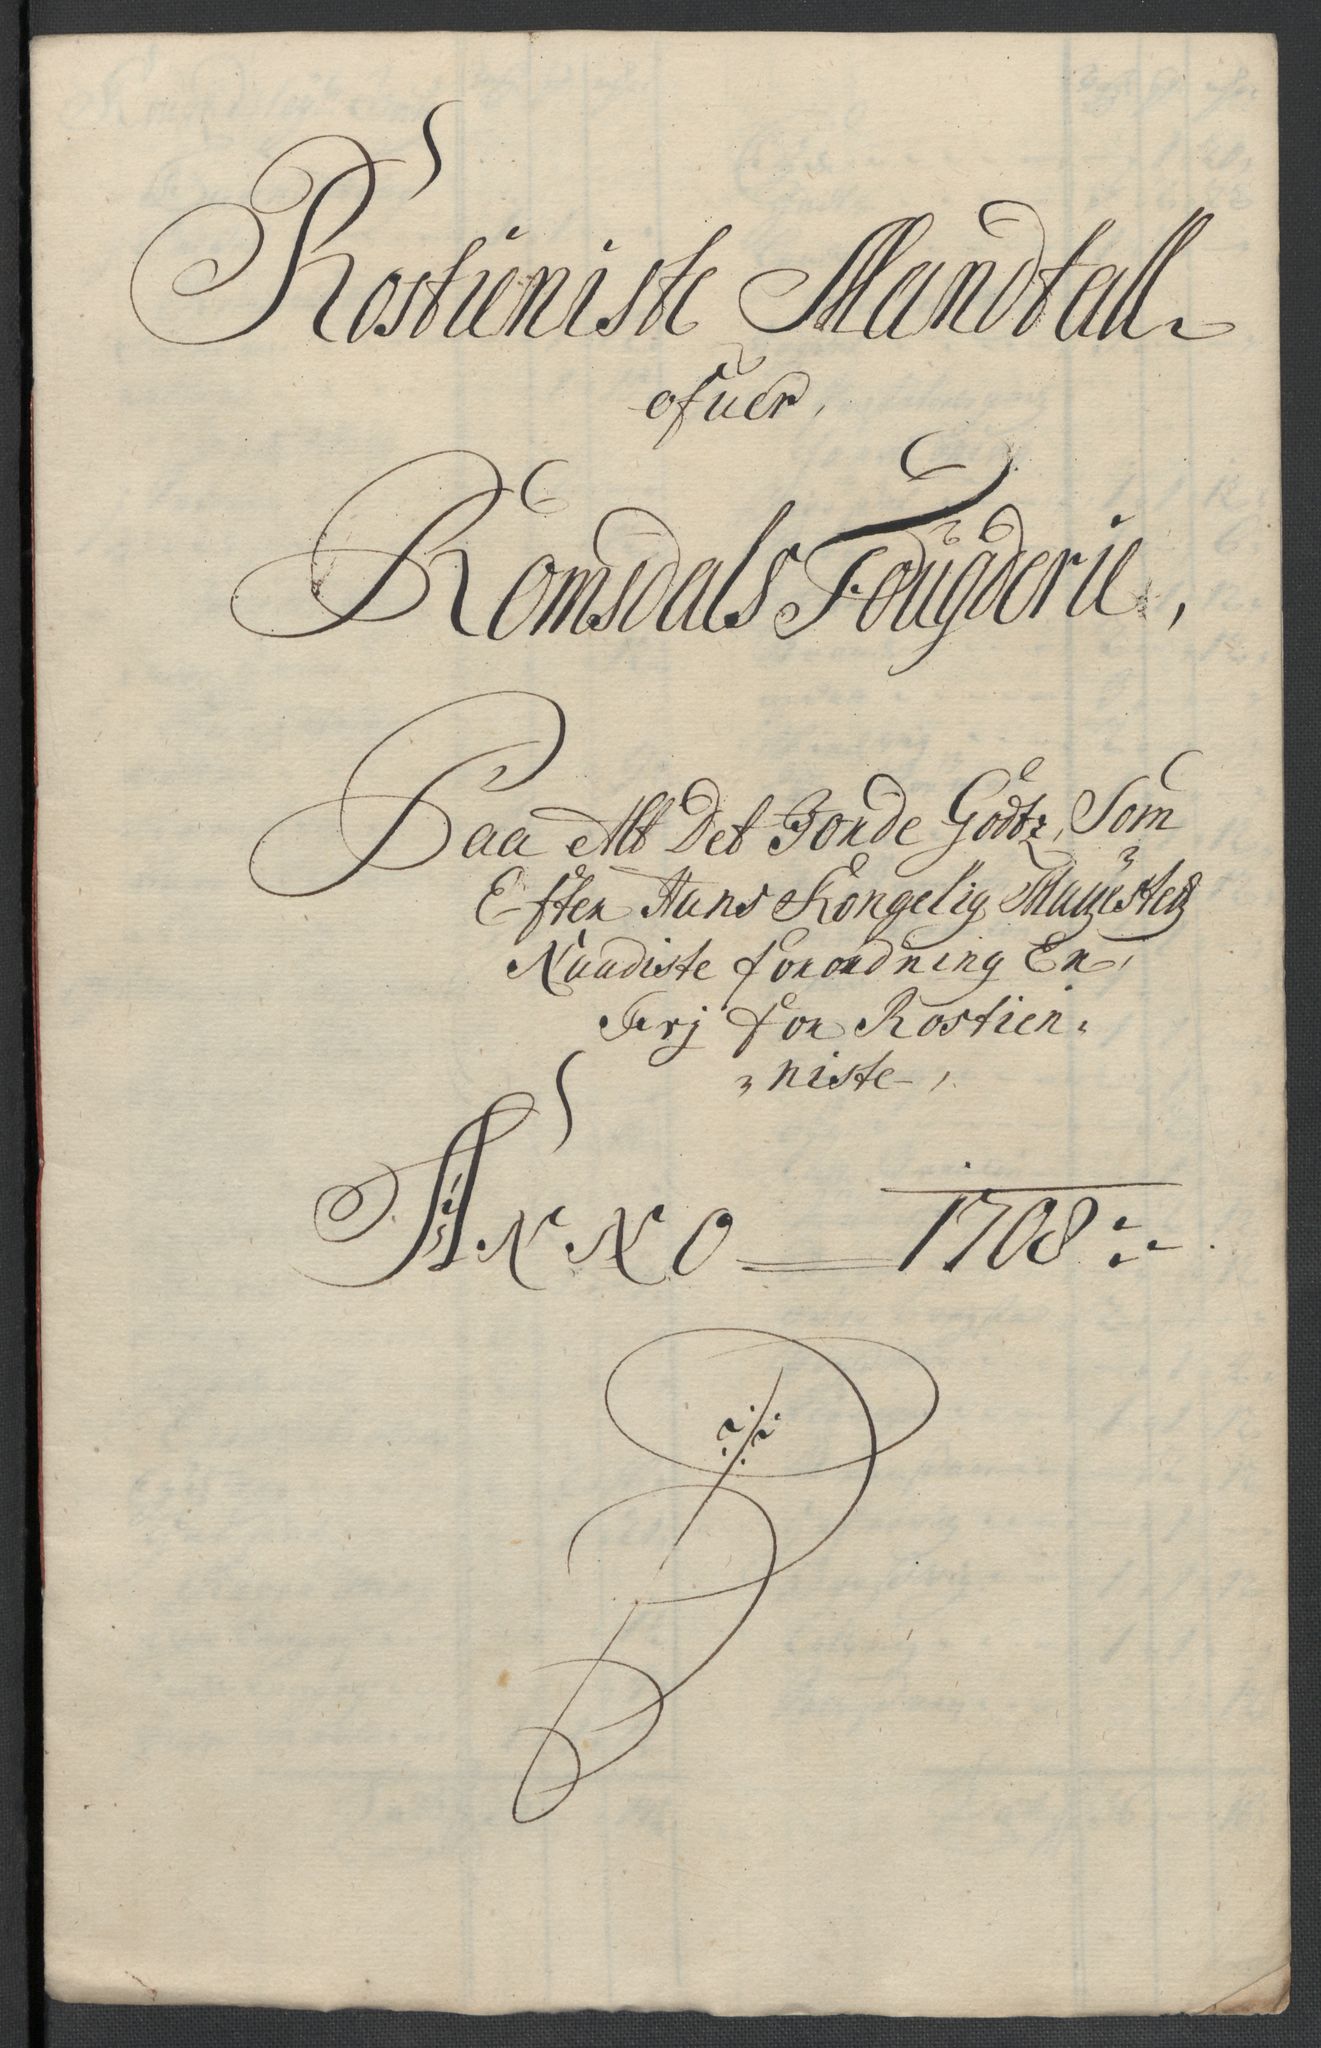 Rostieniste Mandtall
ofuer,
Romsdals Fougderie,
Paa Alt Det Jorde Godtz, Som
Efter Hans Kongelig Mayestetz
Naadiste forordning Er,
Frj for Rostien:
niste,
ANNO 1708